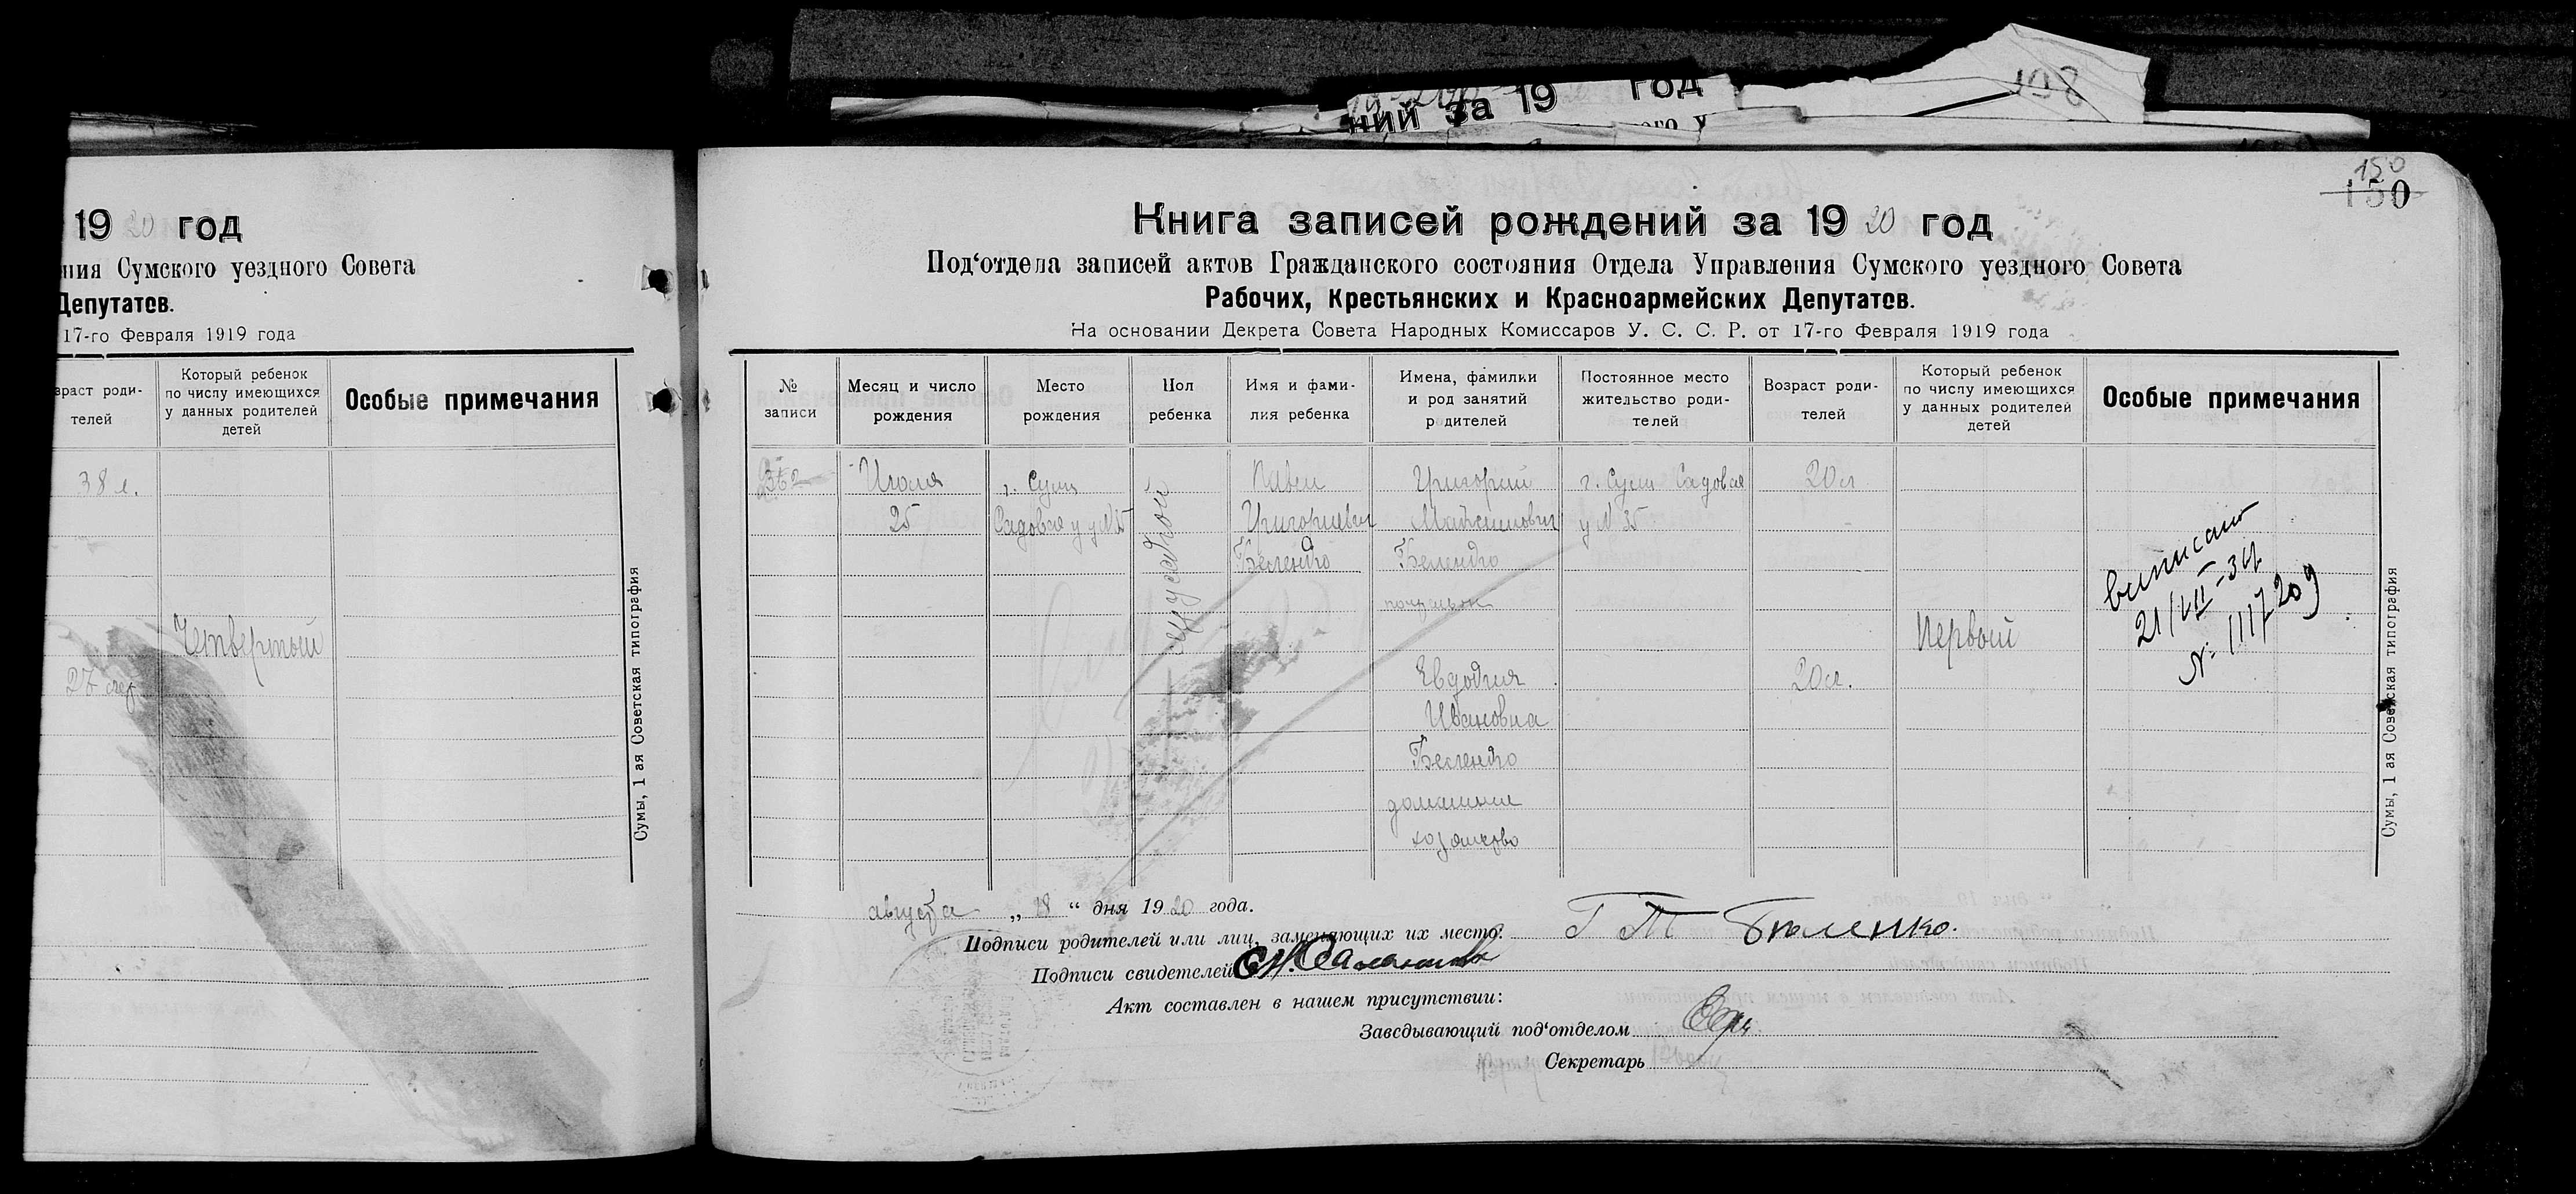 ний за 19 год
198
ого у
19 20 год
ния Сумского уездного Совета
Депутатов.
17-го Февраля 1919 года
зраст роди-
телей
Который ребенок
по числу имеющихся
у данных родителей
детей
Особые примечания
38 л.
Четвертый
27 лет
Сумы, 1 ая Советская типография
150
150
Книга записей рождений за 19 20 год
Под‘отдела записей актов Гражданского состояния Отдела Управления Сумского уездного Совета
Рабочих, Крестьянских и Красноармейских Депутатов.
На основании Декрета Совета Народных Комиссаров У. С. С. Р. от 17-го Февраля 1919 года
№
записи
Месяц и число
рождения
Место
рождения
Пол
ребенка
Имя и фами-
лия ребенка
Имена, фамилии
и род занятий
родителей
Постоянное место
жительство роди-
телей
Возраст роди-
телей
Который ребенок
по числу имеющихся
у данных родителей
детей
Особые примечания
362
Июля
25
г. Сумы
Садовая у
мужской
Павел
Григориевич
Григорий
г. Сумы Садовая
у № 35
20 л
Евдокия
Ивановна
домашнее
хозяйство
20 л.
Первый
выписано
21/VII-34
№ 1117209
Сумы, 1 ая Советская типография
августа „ 18 “ дня 19 20 года.
Подписи родителей или лиц, заменяющих их место: Г Т
Подписи свидетелей
Акт составлен в нашем присутствии:
Заведывающий под‘отделом
Секретарь